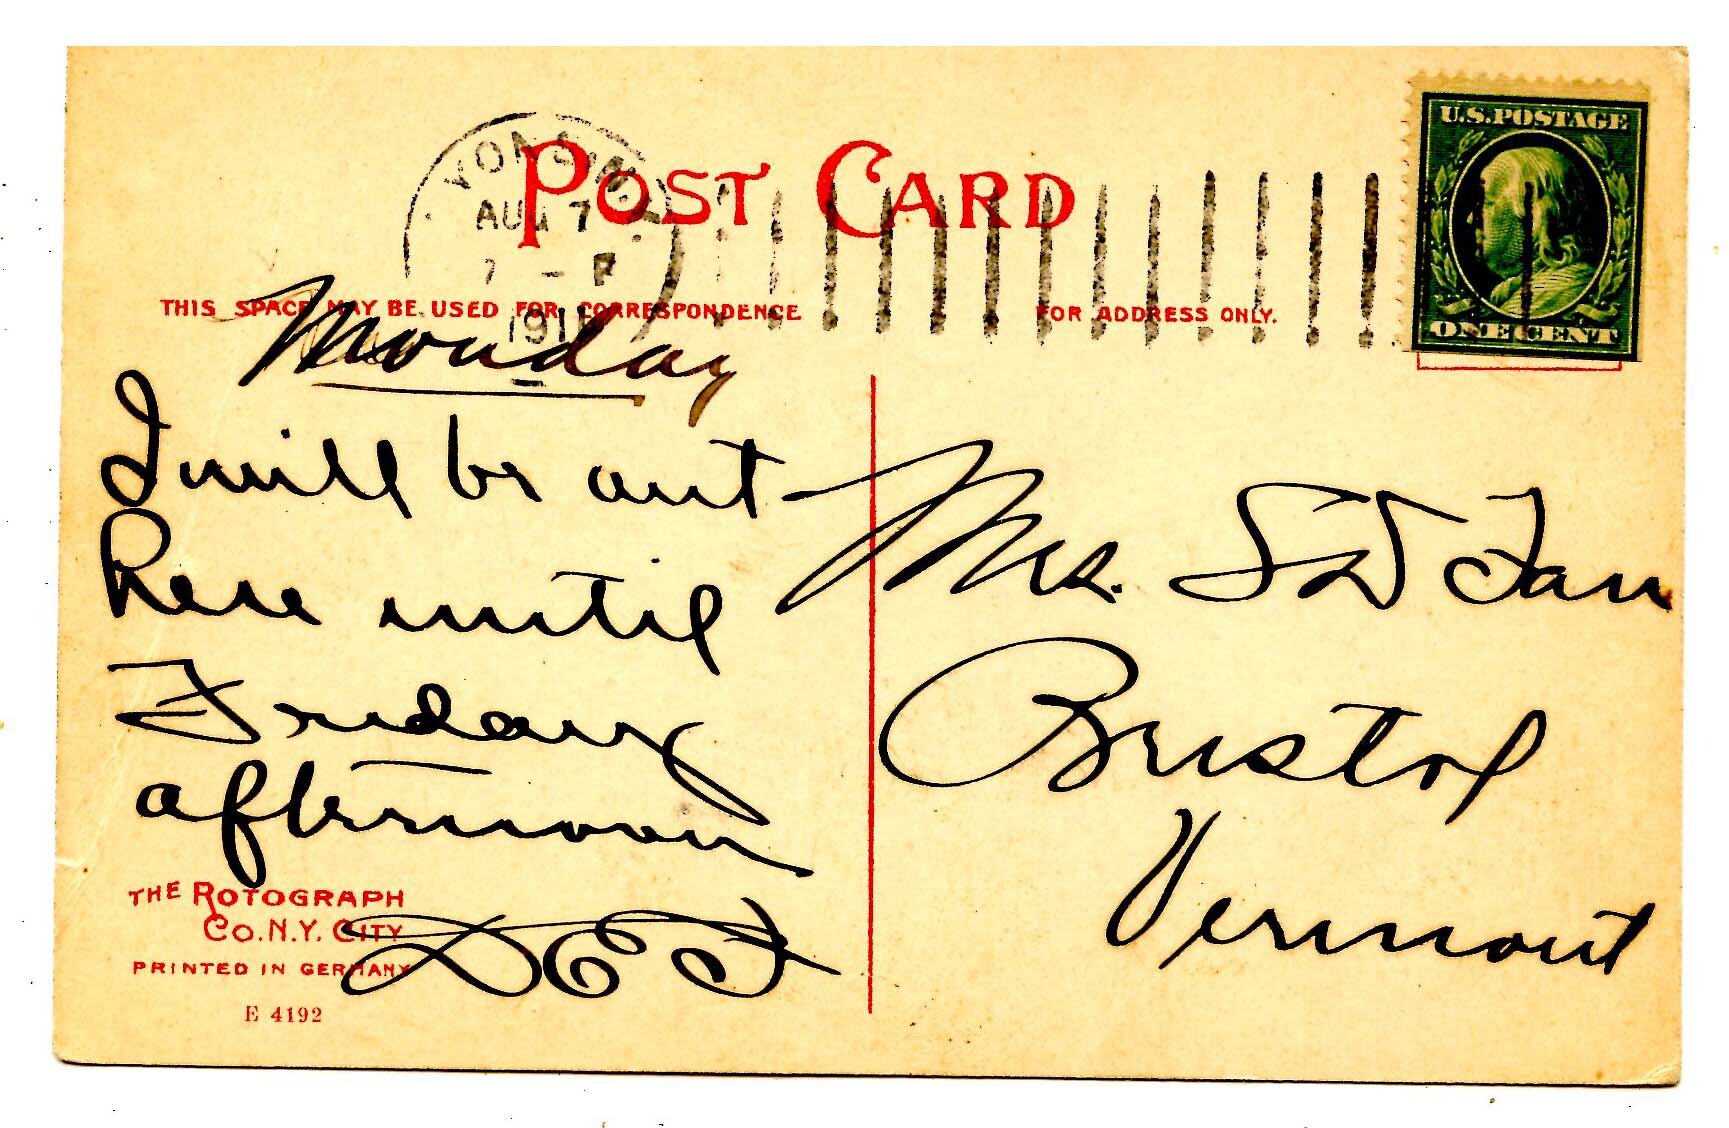 POST CARD
AUG 7
7 - P
191
U.S. POSTAGE
ONE CENT
THIS SPACE MAY BE USED FOR CORRESPONDENCE
FOR ADDRESS ONLY.
Monday
I will be out
here until
Friday
afternoon
DEF
Mrs. S D Farr
Bristol
Vermont
THE ROTOGRAPH
CO. N.Y. CITY
PRINTED IN GERMANY
E 4192